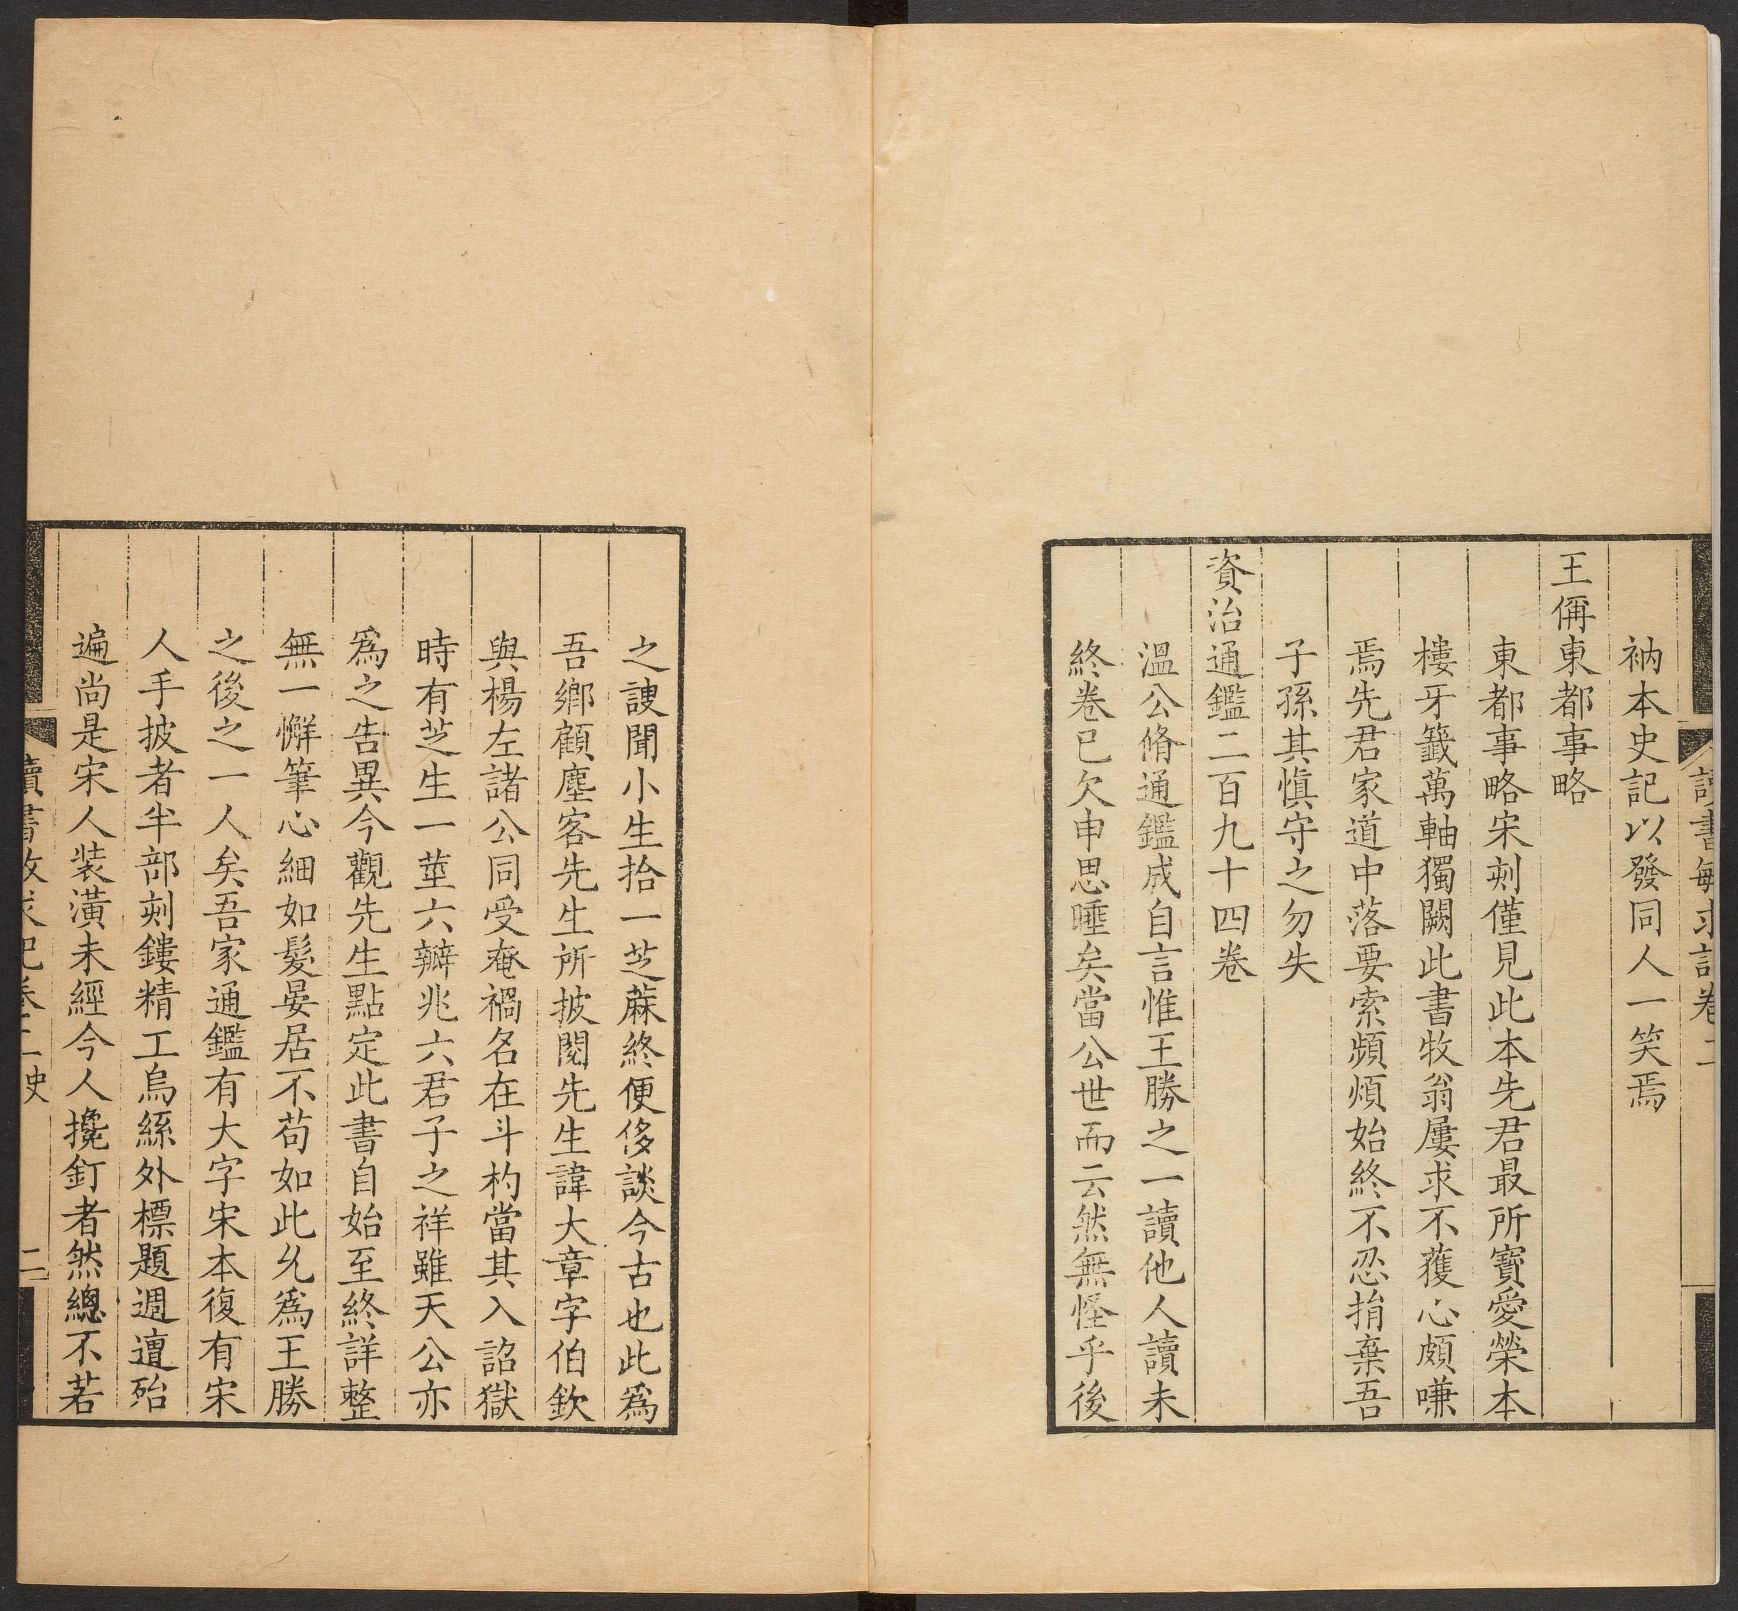 讀書敏求記卷二
衲本史記以發同人一笑焉
王偁東都事略
東都事略宋刻僅見此本先君最所寶愛榮本
樓牙籤萬軸獨闕此書牧翁屢求不獲心頗嗛
焉先君家道中落要索頻煩始終不忍捐棄吾
子孫其愼守之勿失
資治通鑑二百九十四卷
溫公脩通鑑成自言惟王勝之一讀他人讀未
終卷已欠申思睡矣當公世而云然無怪乎後
之謏聞小生拾一芝蔴終便侈談今古也此爲
吾鄉顧塵客先生所披閱先生諱大章字伯欽
與楊左諸公同受奄禍名在斗杓當其入詔獄
時有芝生一莖六瓣兆六君子之祥雖天公亦
爲之告異今觀先生點定此書自始至終詳整
無一懈筆心細如髮晏居不苟如此允爲王勝
之後之一人矣吾家通鑑有大字宋本復有宋
人手披者半部刻鏤精工烏絲外標題週遭殆
遍尚是宋人裝潢未經今人攙釘者然總不若
讀書敏求記卷二 史 二